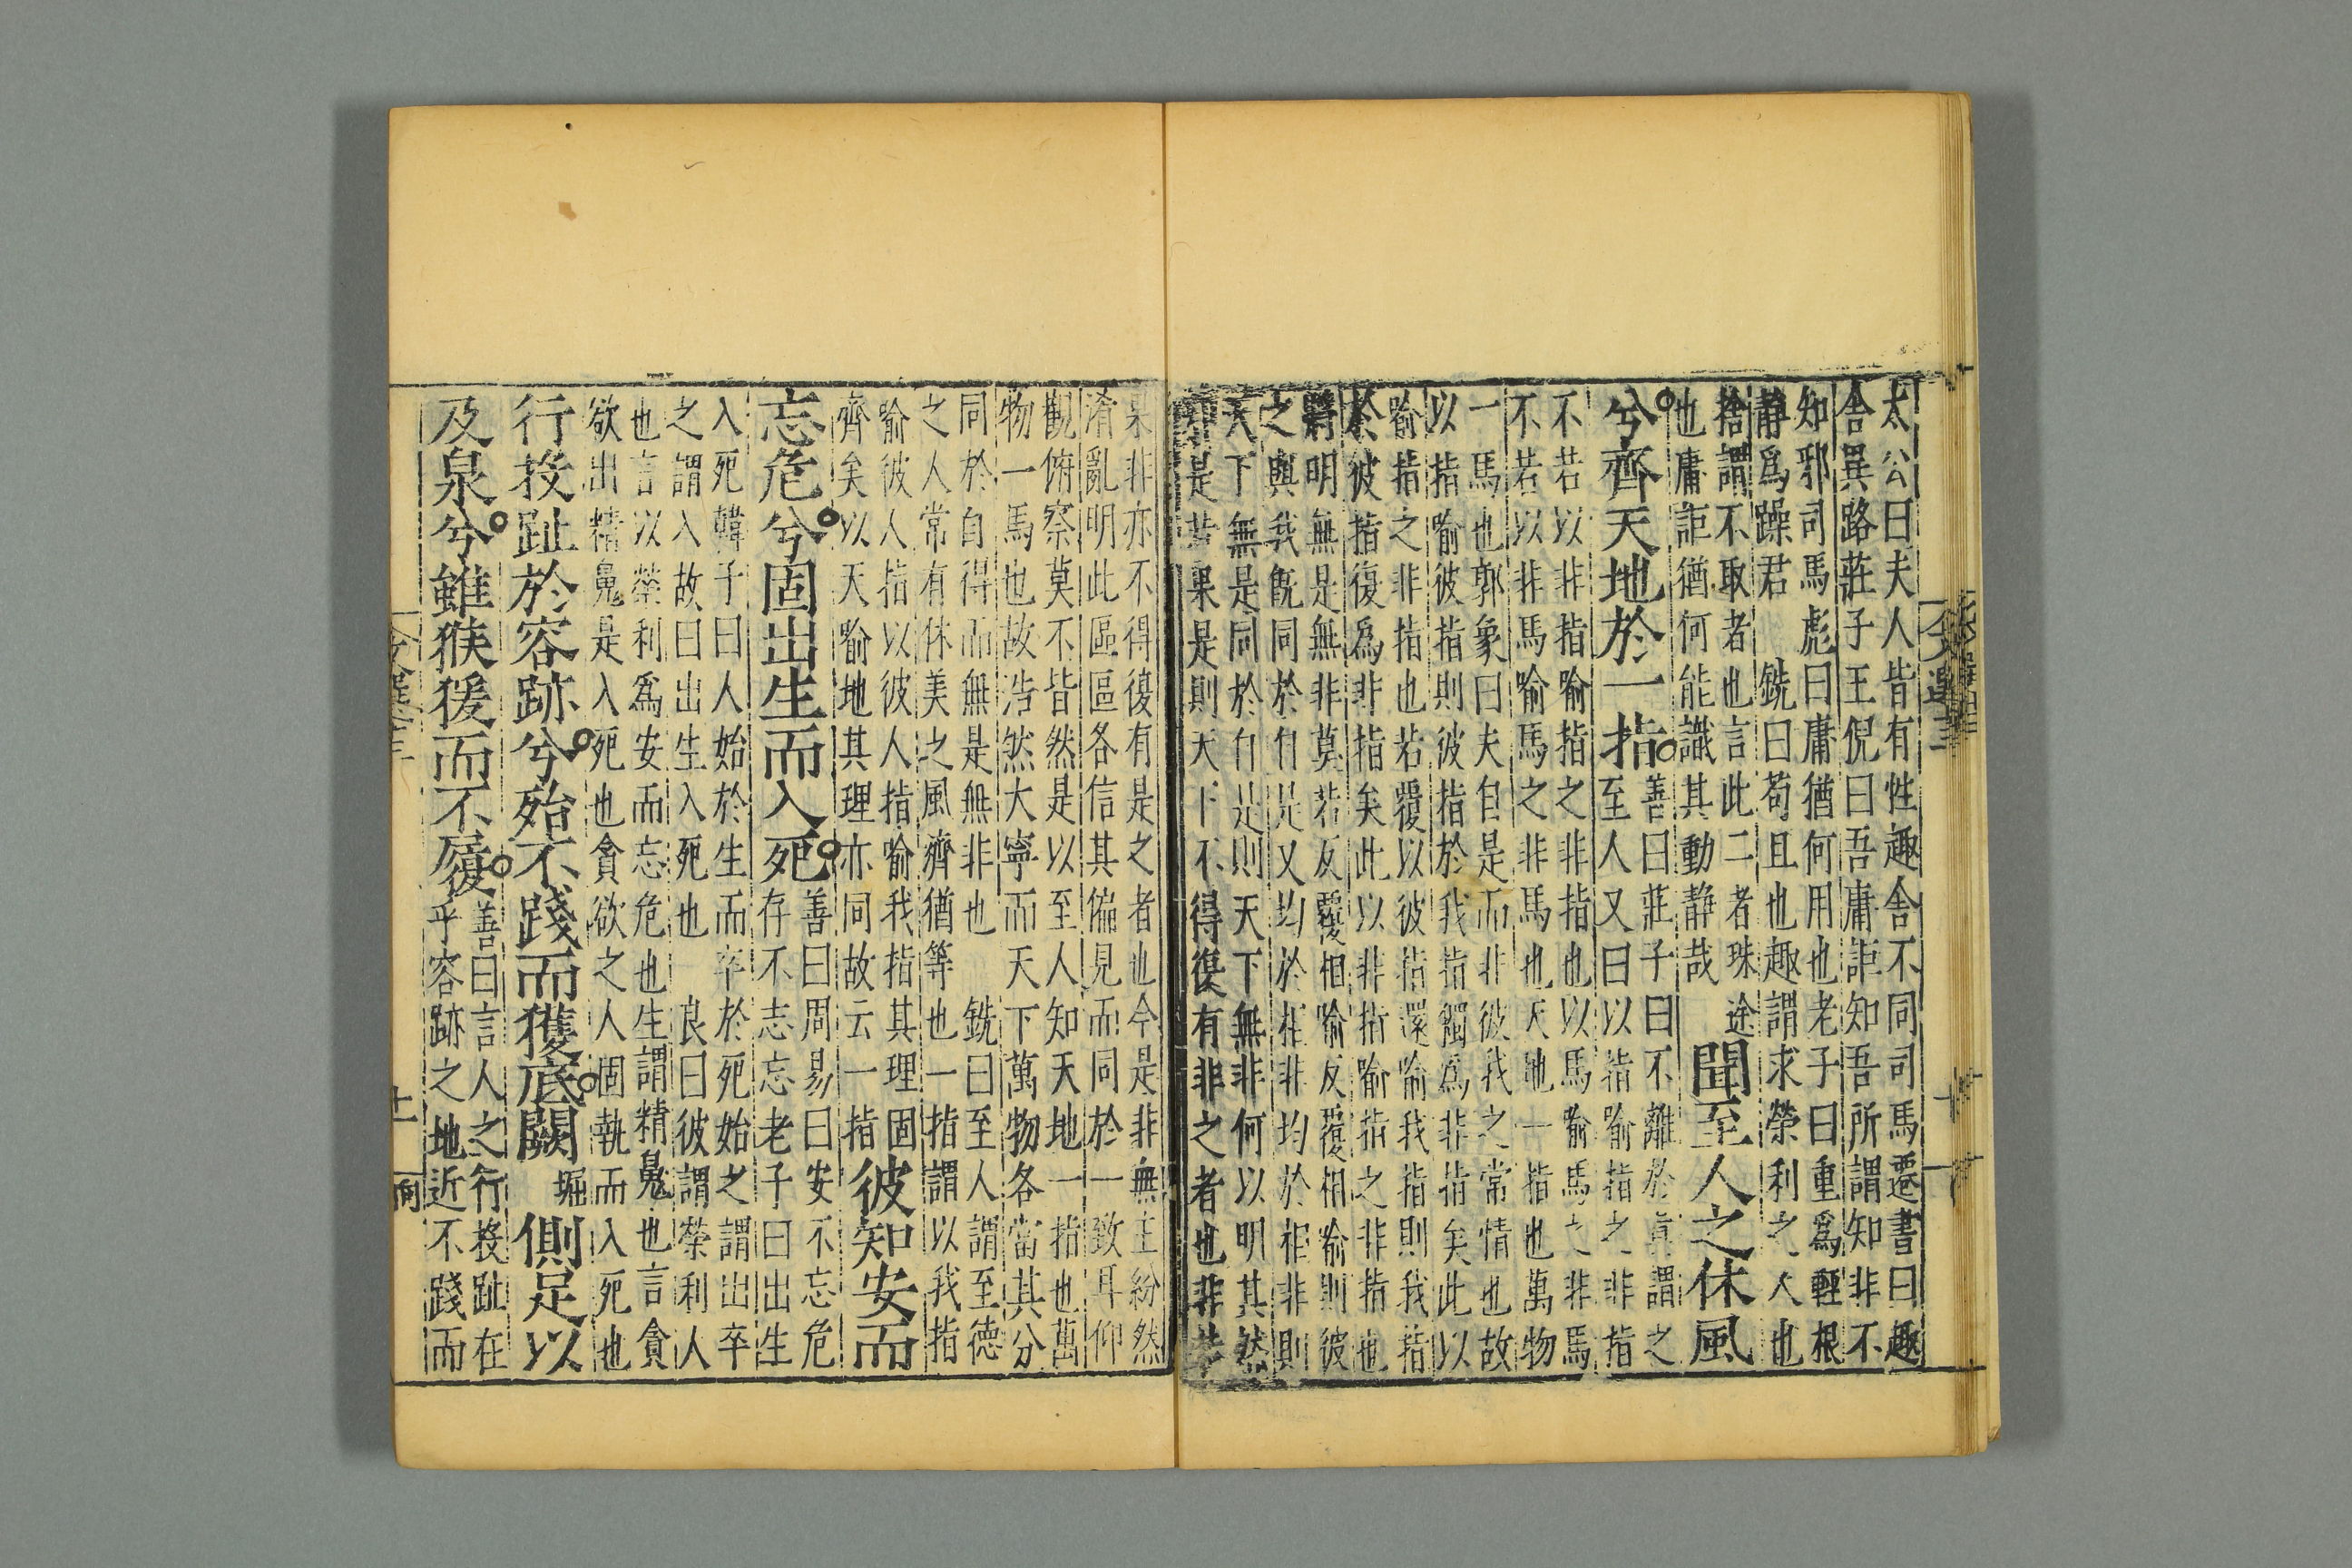 太公曰夫人皆有性趣舍不同司馬遷書曰趣
舍異路莊子王倪曰吾庸詎知吾所謂知非不
知邪司馬彪曰庸猶何用也老子曰重爲輕根
静爲躁君 銑曰苟且也趣謂求榮利之人也
捨謂不取者也言此二者殊途
也庸詎猶何能識其動静哉
聞至人之休風
兮齊天地於一指
善曰莊子曰不離於真謂之
至人又曰以指喻指之非指
不若以非指喻指之非指也以馬喻馬之非馬
不若以非馬喻馬之非馬也天地一指也萬物
一馬也郭象曰夫自是而非彼我之常情也故
以指指喻彼指則彼指於我指觸爲非指矣此以
喻指之非指也若覆以彼指還喻我指則我指
於彼指復爲非指矣此以非指喻指之非指也
將明無是無非莫若反覆相喻反覆相喻則彼
之與我既同於自是又均於相非均於相非則
天下無是同於自是則天下無非何以明其然
是若果是則天下不得復有非之者也非若
果非亦不得復有是之者也今是非無主紛然
淆亂明此區區各信其偏見而同於一致耳仰
觀俯察莫不皆然是以至人知天地一指也萬
物一馬也故浩然大寧而天下萬物各當其分
同於自得而無是無非也 銑曰至人謂至德
之人常有休美之風齊猶等也一指謂以我指
喻彼人指以彼人指喻我指其理固
齊矣以天喻地其理亦同故云一指
彼知安而
忘危兮固出生而入死
善曰周易曰安不忘危
存不忘忘老子曰出生
入死韓子曰人始於生而卒於死始之謂出卒
之謂入故曰出生入死也 良曰彼謂榮利人
也言以榮利爲安而忘危也生謂精鬼也言貪
欲出精鬼是入死也貪欲之人固執而入死也
行投趾於容跡兮殆不踐而獲底闕
堀
側足以
及泉兮雖猴猨而不履
善曰言人之行投趾在
乎容跡之地近不踐而